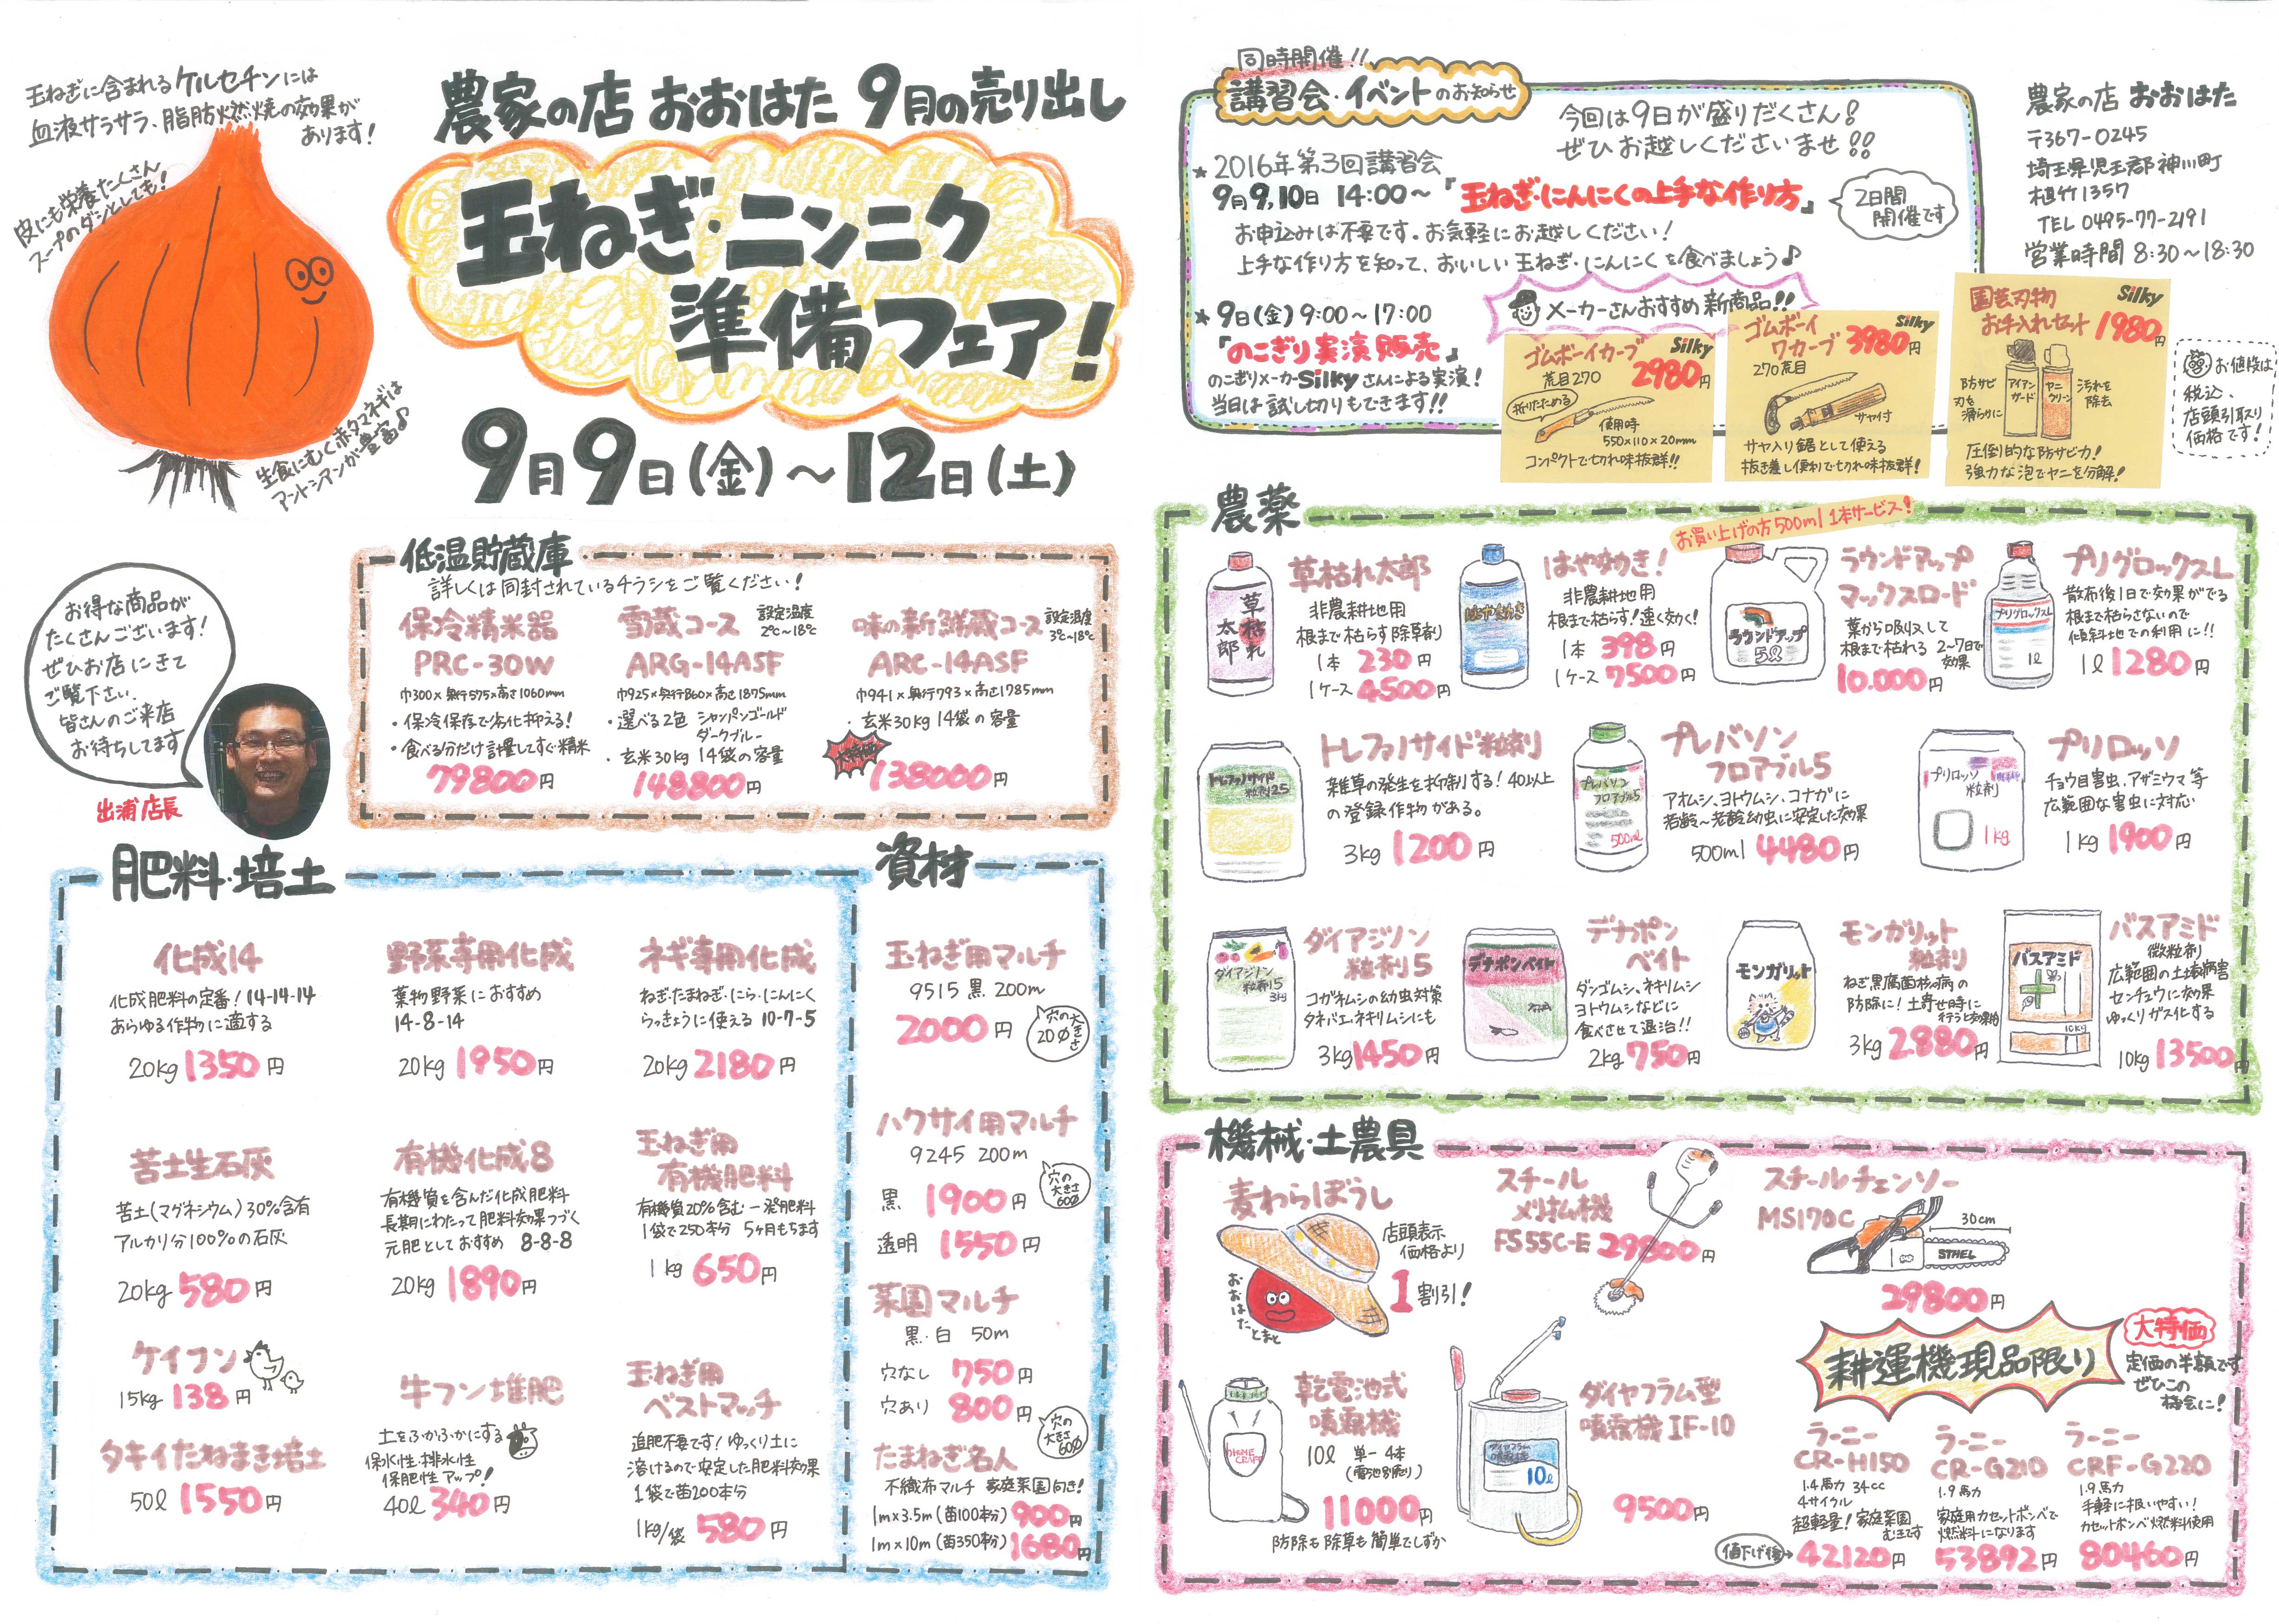 玉ねぎに含まれるケルセチンには
血液サラサラ、脂肪燃焼の効果が
あります!
皮にも栄養たくさん
スープのダシとしても!
生食にむく赤タマネギは
アントシアンが豊富♪
農家の店 おおはた 9月の売り出し
玉ねぎ・ニンニク
準備フェア!
9月9日(金)〜12日(土)
お得な商品が
たくさんございます!
ぜひお店にきて
ご覧下さい.
皆さんのご来店
お待ちしてます
出浦店長
低温貯蔵庫
詳しくは同封されているチラシをご覧ください!
保冷精米器
PRC-30W
巾300×奥行575×高さ1060mm
・保冷保存で劣化抑える!
・食べる分だけ計量してすぐ精米
79800円
雪蔵コース 設定温度
2℃〜18℃
ARG-14ASF
巾925×奥行860×高さ1875mm
・選べる2色 シャンパンゴールド
ダークブルー
・玄米30kg 14袋の容量
148800円
味の新鮮蔵コース 設定温度
3℃〜18℃
ARC-14ASF
巾941×奥行793×高さ1785mm
・玄米30kg 14袋の容量
大特価
138000円
肥料・培土
化成14
化成肥料の定番! 14-14-14
あらゆる作物に適する
20kg 1350円
野菜専用化成
葉物野菜におすすめ
14-8-14
20kg 1950円
ネギ専用化成
ねぎ・たまねぎ・にら・にんにく
らっきょうに使える 10-7-5
20kg 2180円
苦土生石灰
苦土(マグネシウム)30%含有
アルカリ分100%の石灰
20kg 580円
有機化成8
有機質を含んだ化成肥料
長期にわたって肥料効果つづく
元肥としておすすめ 8-8-8
20kg 1890円
玉ねぎ用
有機肥料
有機質20%含む 一発肥料
1袋で250本分 5ヶ月もちます
1kg 650円
ケイフン
15kg 138円
タキイたねまき培土
50ℓ 1550円
牛フン堆肥
土をふかふかにする
保水性・排水性
保肥性アップ!
40ℓ 340円
玉ねぎ用
ベストマッチ
追肥不要です! ゆっくり土に
溶けるので安定した肥料効果
1袋で苗200本分
1kg/袋 580円
資材
玉ねぎ用マルチ
9515 黒 200m
2000円
穴の大きさ
20∅
ハクサイ用マルチ
9245 200m
黒 1900円
透明 1550円
穴の
大きさ
60∅
菜園マルチ
黒・白 50m
穴なし 750円
穴あり 800円
穴の
大きさ
60∅
たまねぎ名人
不織布マルチ 家庭菜園向き!
1m×3.5m(苗100本分) 900円
1m×10m(苗350本分) 1680円
同時開催!!
講習会・イベントのお知らせ
今回は9日が盛りだくさん!
ぜひお越しくださいませ!!
★2016年第3回講習会
9月9,10日 14:00〜『玉ねぎ・にんにくの上手な作り方』
2日間
開催です
お申込みは不要です。お気軽にお越しください!
上手な作り方を知って、おいしい玉ねぎ・にんにくを食べましょう♪
★9日(金)9:00〜17:00
『のこぎり実演販売』
のこぎりメーカーSilkyさんによる実演!
当日は試し切りもできます!!
メーカーさんおすすめ新商品!!
ゴムボーイカーブ Silky
荒目270 2980円
折りたためる
使用時
550×110×20mm
コンパクトで切れ味抜群!!
ゴムボーイ Silky
ワカーブ 3980円
270荒目
サヤ付
サヤ入り鋸として使える
抜き差し便利で切れ味抜群!
園芸刃物 Silky
お手入れセット 1980円
防サビ
刃を
滑らかに
アイアン
ガード
ヤニ
クリーン
汚れを
除去
圧倒的な防サビ力!
強力な泡でヤニを分解!
農家の店 おおはた
〒367-0245
埼玉県児玉郡神川町
植竹1357
TEL 0495-77-2191
営業時間 8:30〜18:30
お値段は
税込、
店頭引取り
価格です!
農薬
草枯れ太郎
草枯れ
太郎
非農耕地用
根まで枯らす除草剤
1本 230円
1ケース 4500円
はやゆめき!
非農耕地用
根まで枯らす!速く効く!
1本 398円
1ケース 7500円
お買い上げの方500ml 1本サービス!
ラウンドアップ
マックスロード
ラウンドアップ
5ℓ
葉から吸収して
根まで枯れる 2〜7日で
効果
10.000円
プリグロックスL
プリグロックスL
1ℓ
散布後1日で効果がでる
根まで枯らさないので
傾斜地での利用に!!
1ℓ 1280円
トレファノサイド粒剤
トレファノサイド
粒剤2.5
雑草の発生を抑制する! 40以上
の登録作物がある。
3kg 1200円
プレバソン
フロアブル5
プレバソン
フロアブル5
500ml
アオムシ、ヨトウムシ、コナガに
若齢〜老齢幼虫に安定した効果
500ml 4480円
プリロッソ
プリロッソ
粒剤
1kg
チョウ目害虫、アザミウマ等
広範囲な害虫に対応
1kg 1900円
ダイアジノン
粒剤5
ダイアジノン
粒剤5
3kg
コガネムシの幼虫対策
タネバエ、ネキリムシにも
3kg 1450円
デナポン
ベイト
デナポンベイト
ダンゴムシ、ネキリムシ
ヨトウムシなどに
食べさせて退治!!
2kg 750円
モンガリット
粒剤
モンガリット
ねぎ黒腐菌核病の
防除に! 土寄せ時に
3kg 2.880円
バスアミド
微粒剤
バスアミド
10kg
広範囲の土壌病害
センチュウに効果
ゆっくりガス化する
10kg 13500円
機械・土農具
麦わらぼうし
店頭表示
価格より
1割引!
おおはたとまと
スチール
刈払機
FS55C-E 29800円
スチールチェンソー
MS170C
30cm
STHEL
29800円
乾電池式
噴霧機
HOME
CRAFT
10ℓ 単一 4本
(電池別売り)
11000円
防除も除草も簡単でしずか
ダイヤフラム型
噴霧機 IF-10
10ℓ
9500円
耕運機現品限り
大特価
定価の半額です
ぜひこの
機会に!
ラーニー
CR-H150
1.4馬力 34cc
4サイクル
超軽量! 家庭菜園
むきです
値下げ後→42120円
ラーニー
CR-G210
1.9馬力
家庭用カセットボンベで
燃料になります
53892円
ラーニー
CRF-G220
1.9馬力
手軽に扱いやすい!
カセットボンベ燃料使用
80460円